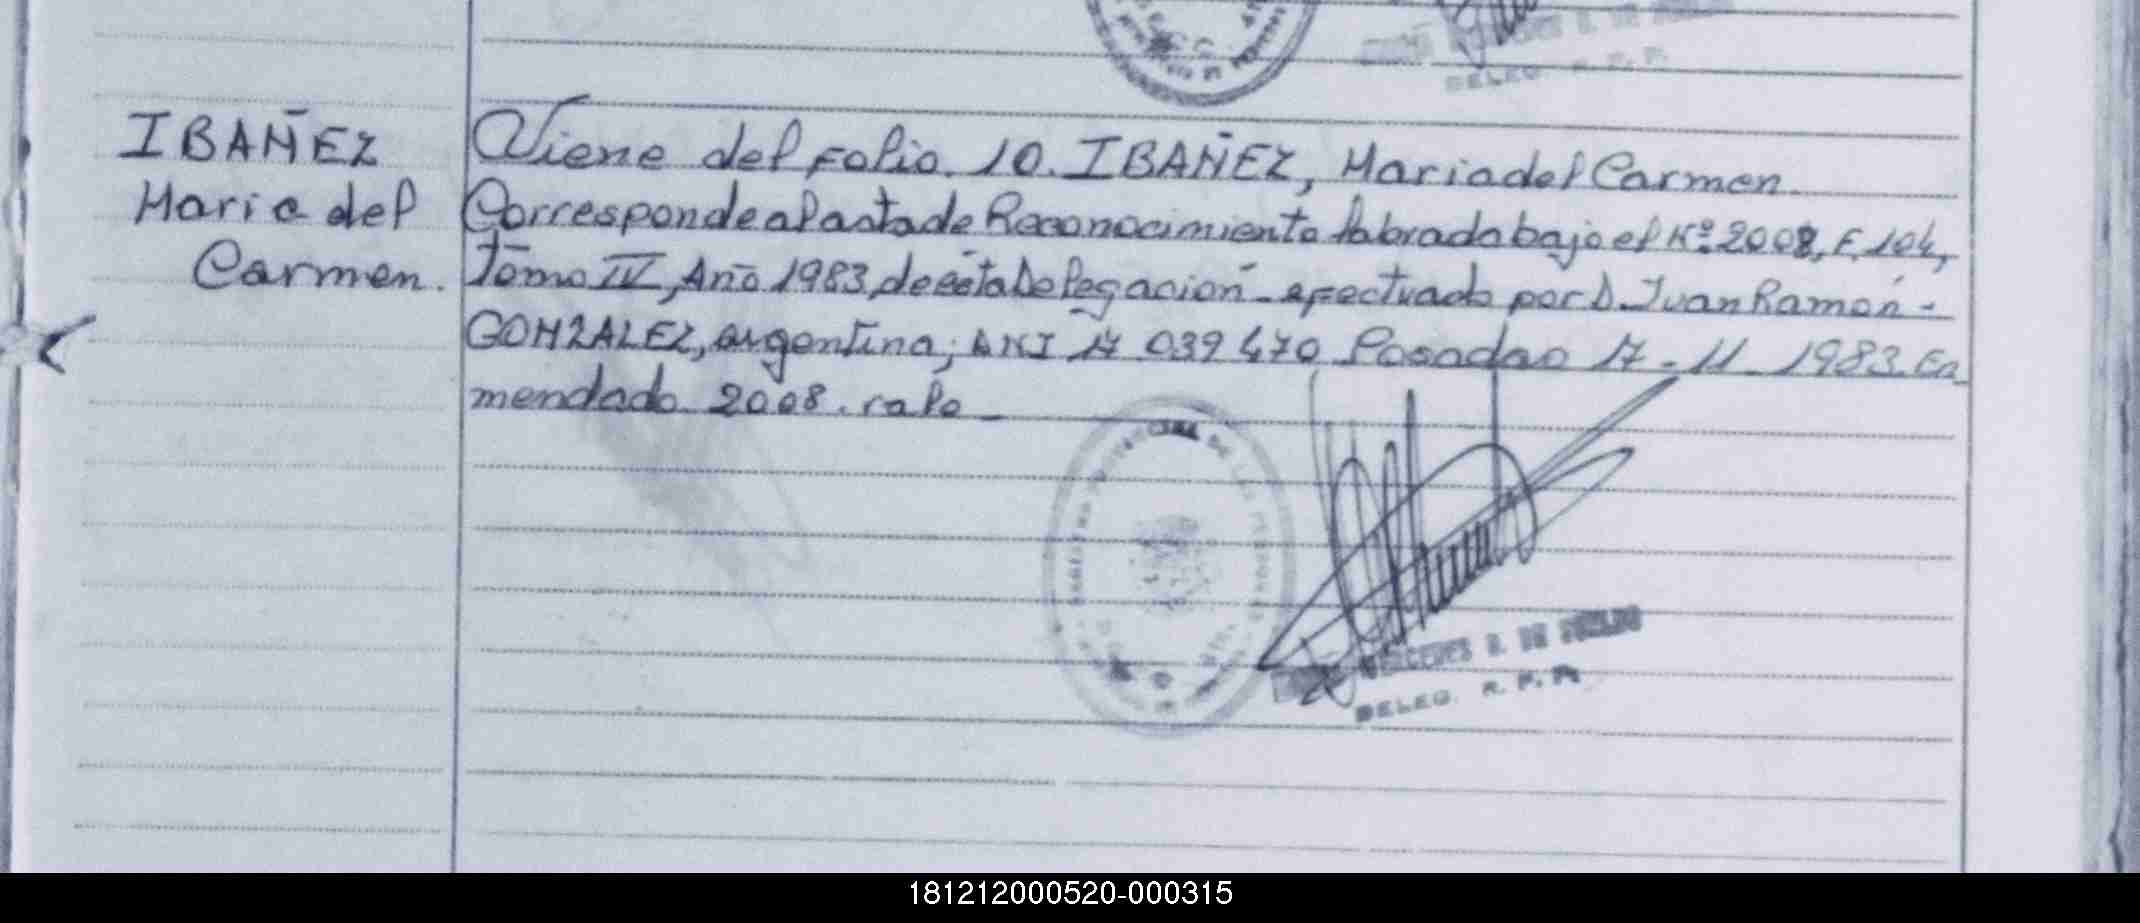 IBAÑEZ
Maria del
Carmen.
Viene del Folio. 10. IBAÑEZ, Maria del Carmen.
Corresponde al acta de Reconocimiento labrada bajo el Nº 2008, F. 104,
Tomo IV, Año 1983, de esta Delegación - efectuado por D. Juan Ramón -
GONZALEZ, argentino, DNI 17 039 470 Posadas 17 - 11 - 1983. En
mendado 2008. vale
MERCEDES R. DE
DELEG. R. P. P.
181212000520-000315